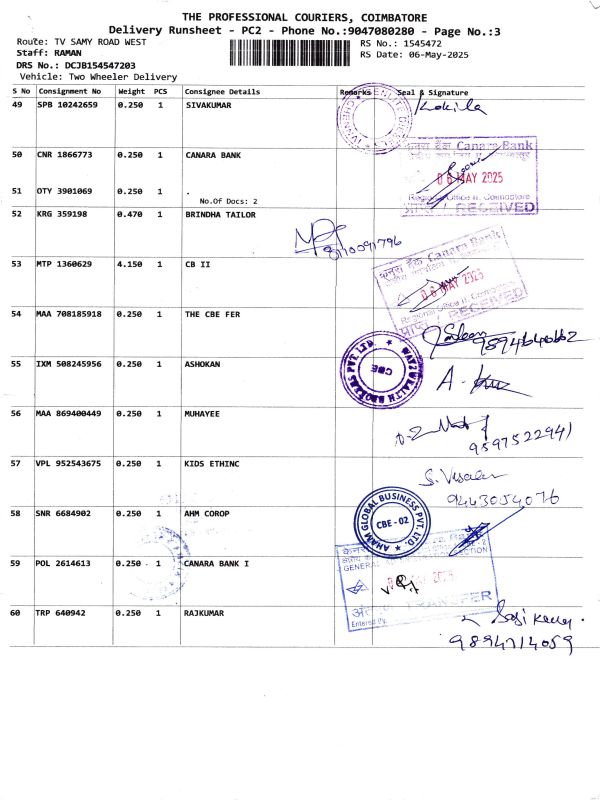 THE PROFESSIONAL COURIERS, COIMBATORE
Delivery Runsheet - PC2 - Phone No.:9047080280 - Page No.:3
Route: TV SAMY ROAD WEST
RS No.: 1545472
Staff: RAMAN
RS Date: 06-May-2025
DRS No.: DCJB154547203
Vehicle: Two Wheeler Delivery
S No Consignment No Weight PCS Consignee Details Remarks Seal & Signature
49 SPB 10242659 0.250 1 SIVAKUMAR
Kokila
50 CNR 1866773 0.250 1 CANARA BANK
केनरा बैंक Canara Bank
06 MAY 2025
Regional Office II, Coimbatore
प्राप्त / RECEIVED
51 OTY 3901069 0.250 1 .
No.Of Docs: 2
52 KRG 359198 0.470 1 BRINDHA TAILOR
53 MTP 1360629 4.150 1 CB II
केनरा बैंक Canara Bank
06 MAY 2025
Regional Office II, Coimbatore
प्राप्त / RECEIVED
54 MAA 708185918 0.250 1 THE CBE FER
9894640662
WAY2WEALTH BROKERS PVT. LTD.
CBE
55 IXM 508245956 0.250 1 ASHOKAN
56 MAA 869400449 0.250 1 MUHAYEE
9597522941
57 VPL 952543675 0.250 1 KIDS ETHINC
9443054076
58 SNR 6684902 0.250 1 AHM COROP
AHAM GLOBAL BUSINESS PVT. LTD.
CBE - 02
59 POL 2614613 0.250 1 CANARA BANK I
TRANSFER
Entered By.
60 TRP 640942 0.250 1 RAJKUMAR
9894714059